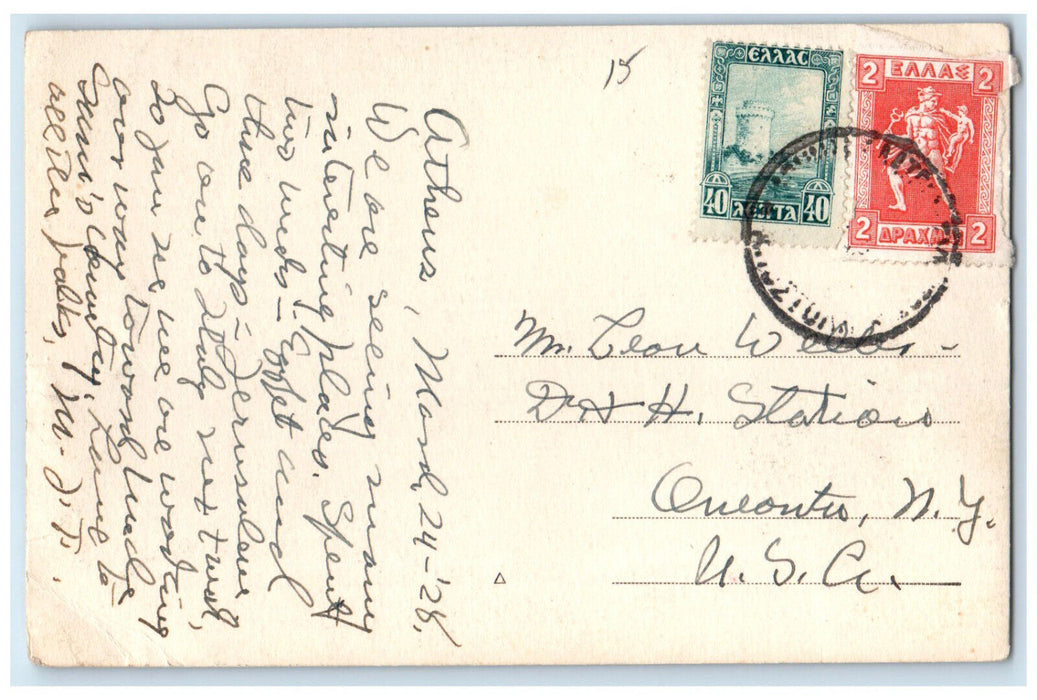 15
ΕΛΛΑΣ
40 ΛΕΠΤΑ 40
2 ΕΛΛΑΣ 2
2 ΔΡΑΧΜΑΙ 2
Athens, March 24-'28.
We are seeing many
interesting places. Spent
two weeks - Egypt and
three days - Jerusalem
Go on to Italy next week,
So you see we are working
our way toward Uncle
Sam's Country. Love to
all the folks, M. J. T.
Mr. Leon Weeks -
D + H. Station
Oneonta, N. Y.
U. S. A.